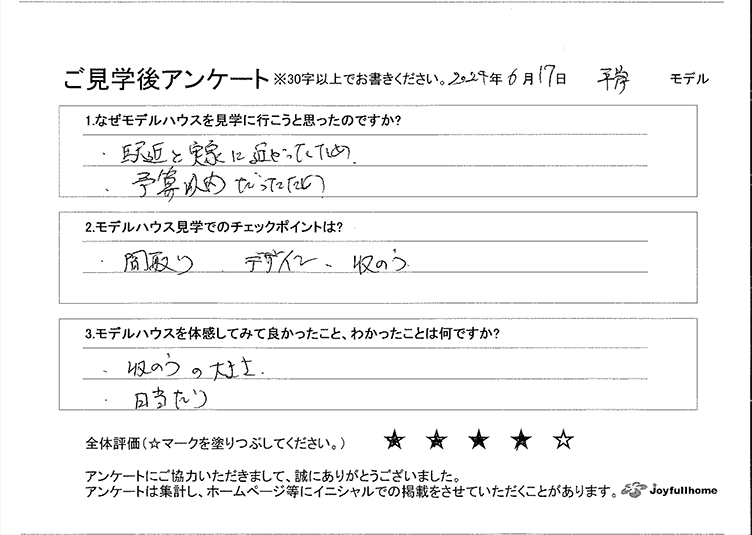 ご見学後アンケート ※30字以上でお書きください。2024年 6月 17日 平岸 モデル
1.なぜモデルハウスを見学に行こうと思ったのですか?
・駅近と実家に近かったため.
・予算以内だったため
2.モデルハウス見学でのチェックポイントは?
・間取り 、デザイン、収のう
3.モデルハウスを体感してみて良かったこと、わかったことは何ですか?
・収のうの大きさ.
・日当たり
全体評価(☆マークを塗りつぶしてください。) ★ ★ ★ ★ ☆
アンケートにご協力いただきまして、誠にありがとうございました。
アンケートは集計し、ホームページ等にイニシャルでの掲載をさせていただくことがあります。 Joyfullhome